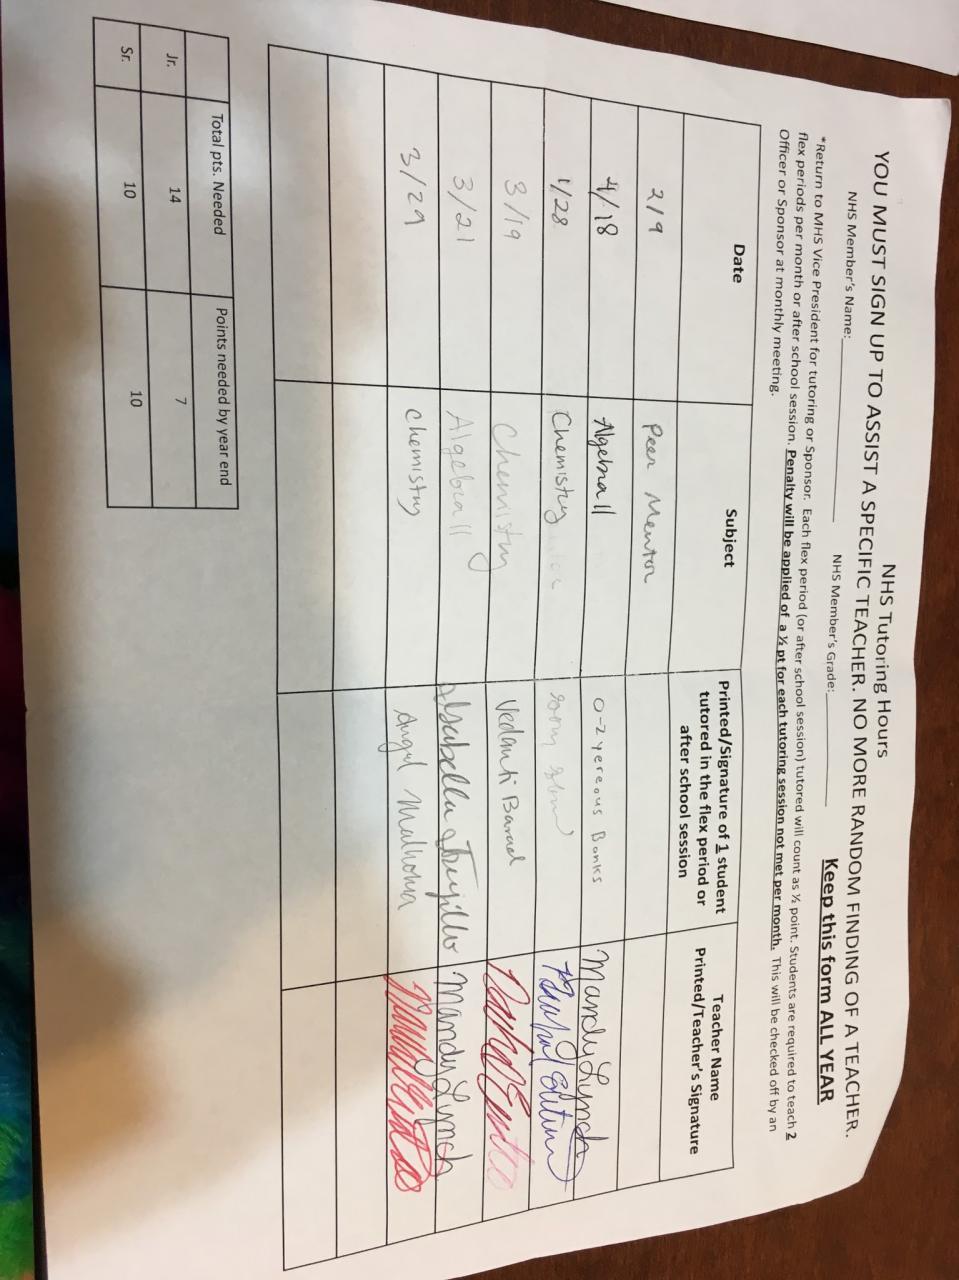 NHS Tutoring Hours
YOU MUST SIGN UP TO ASSIST A SPECIFIC TEACHER. NO MORE RANDOM FINDING OF A TEACHER.
NHS Member's Name: NHS Member's Grade: Keep this form ALL YEAR
*Return to MHS Vice President for tutoring or Sponsor. Each flex period (or after school session) tutored will count as ½ point. Students are required to teach 2
flex periods per month or after school session. Penalty will be applied of a ½ pt for each tutoring session not met per month. This will be checked off by an
Officer or Sponsor at monthly meeting.
Date Subject Printed/Signature of 1 student tutored in the flex period or after school session Teacher Name Printed/Teacher's Signature
2/9 Peer Mentor
4/18 Algebra II Banks Mandy Lynch
1/28 Chemistry
3/19 Chemistry Vedanti
3/21 Algebra II Isabella Trujillo Mandy Lynch
3/29 Chemistry Malhotra
Total pts. Needed Points needed by year end
Jr. 14 7
Sr. 10 10